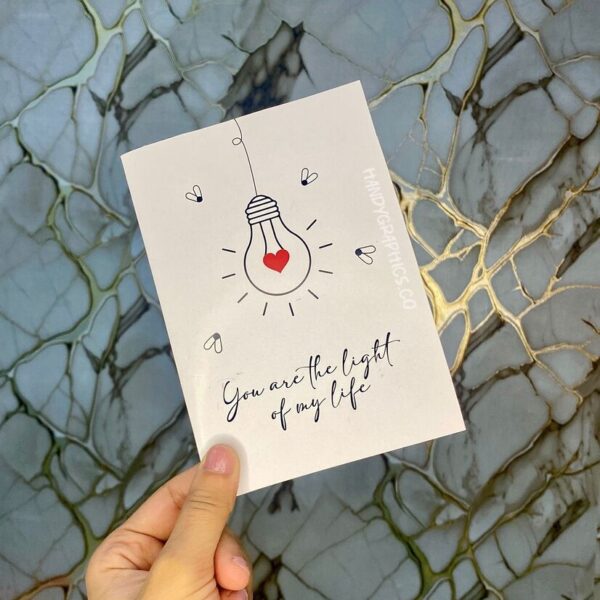 HANDYGRAPHICS.CO
You are the light
of my life